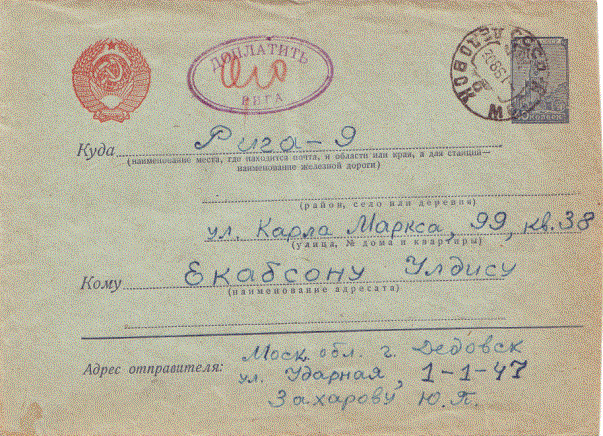 ДОПЛАТИТЬ
РИГА
Куда Рига-9
(наименование места, где находится почта, и области или края, а для станций—
наименование железной дороги)
(район, село или деревня)
ул. Карла Маркса, 99, кв. 38
(улица, № дома и квартиры)
Кому Екабсону Улдису
(наименование адресата)
Адрес отправителя: Моск. обл. г. Дедовск
ул. Ударная, 1-1-47
Захарову Ю.П.